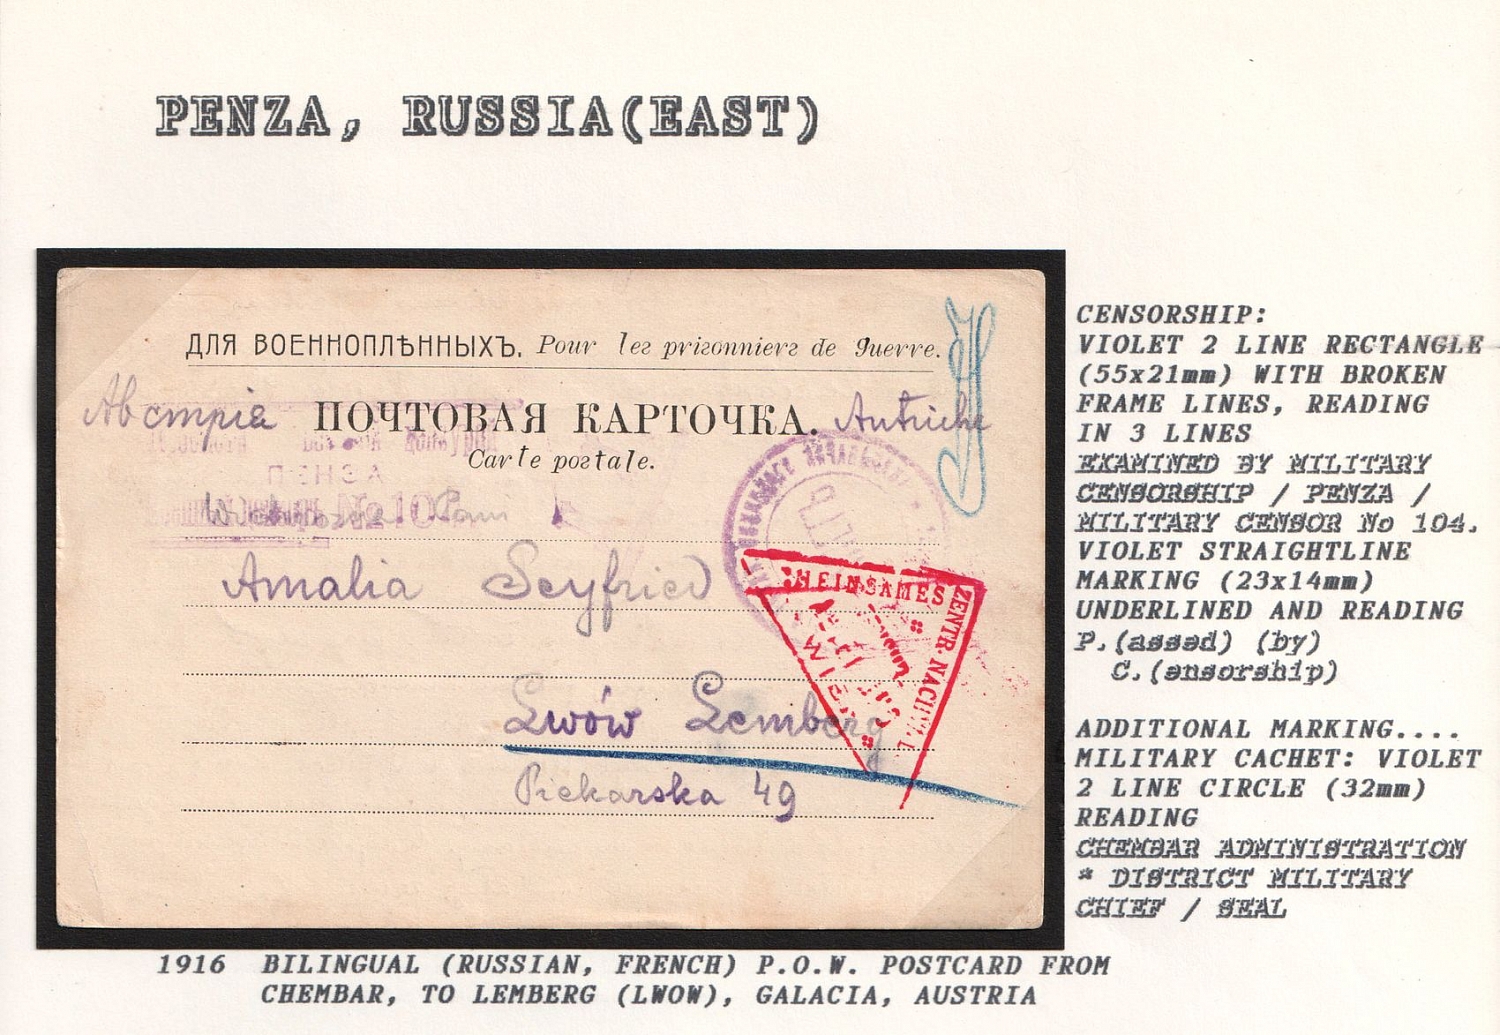 PENZA, RUSSIA(EAST)
ДЛЯ ВОЕННОПЛѢННЫХЪ. Pour les prisonniers de guerre.
Австрія ПОЧТОВАЯ КАРТОЧКА. Autriche
Carte postale.
ПЕНЗА
№ 104 Pani
Amalia Seyfried
Lwów Lemberg
Piekarska 49
GEMEINSAMES
ZENTR. NACHW.
WIEN
CENSORSHIP:
VIOLET 2 LINE RECTANGLE
(55x21mm) WITH BROKEN
FRAME LINES, READING
IN 3 LINES
EXAMINED BY MILITARY
CENSORSHIP / PENZA /
MILITARY CENSOR No 104.
VIOLET STRAIGHTLINE
MARKING (23x14mm)
UNDERLINED AND READING
P.(assed) (by)
C.(ensorship)
ADDITIONAL MARKING....
MILITARY CACHET: VIOLET
2 LINE CIRCLE (32mm)
READING
CHEMBAR ADMINISTRATION
* DISTRICT MILITARY
CHIEF / SEAL
1916 BILINGUAL (RUSSIAN, FRENCH) P.O.W. POSTCARD FROM
CHEMBAR, TO LEMBERG (LWOW), GALACIA, AUSTRIA